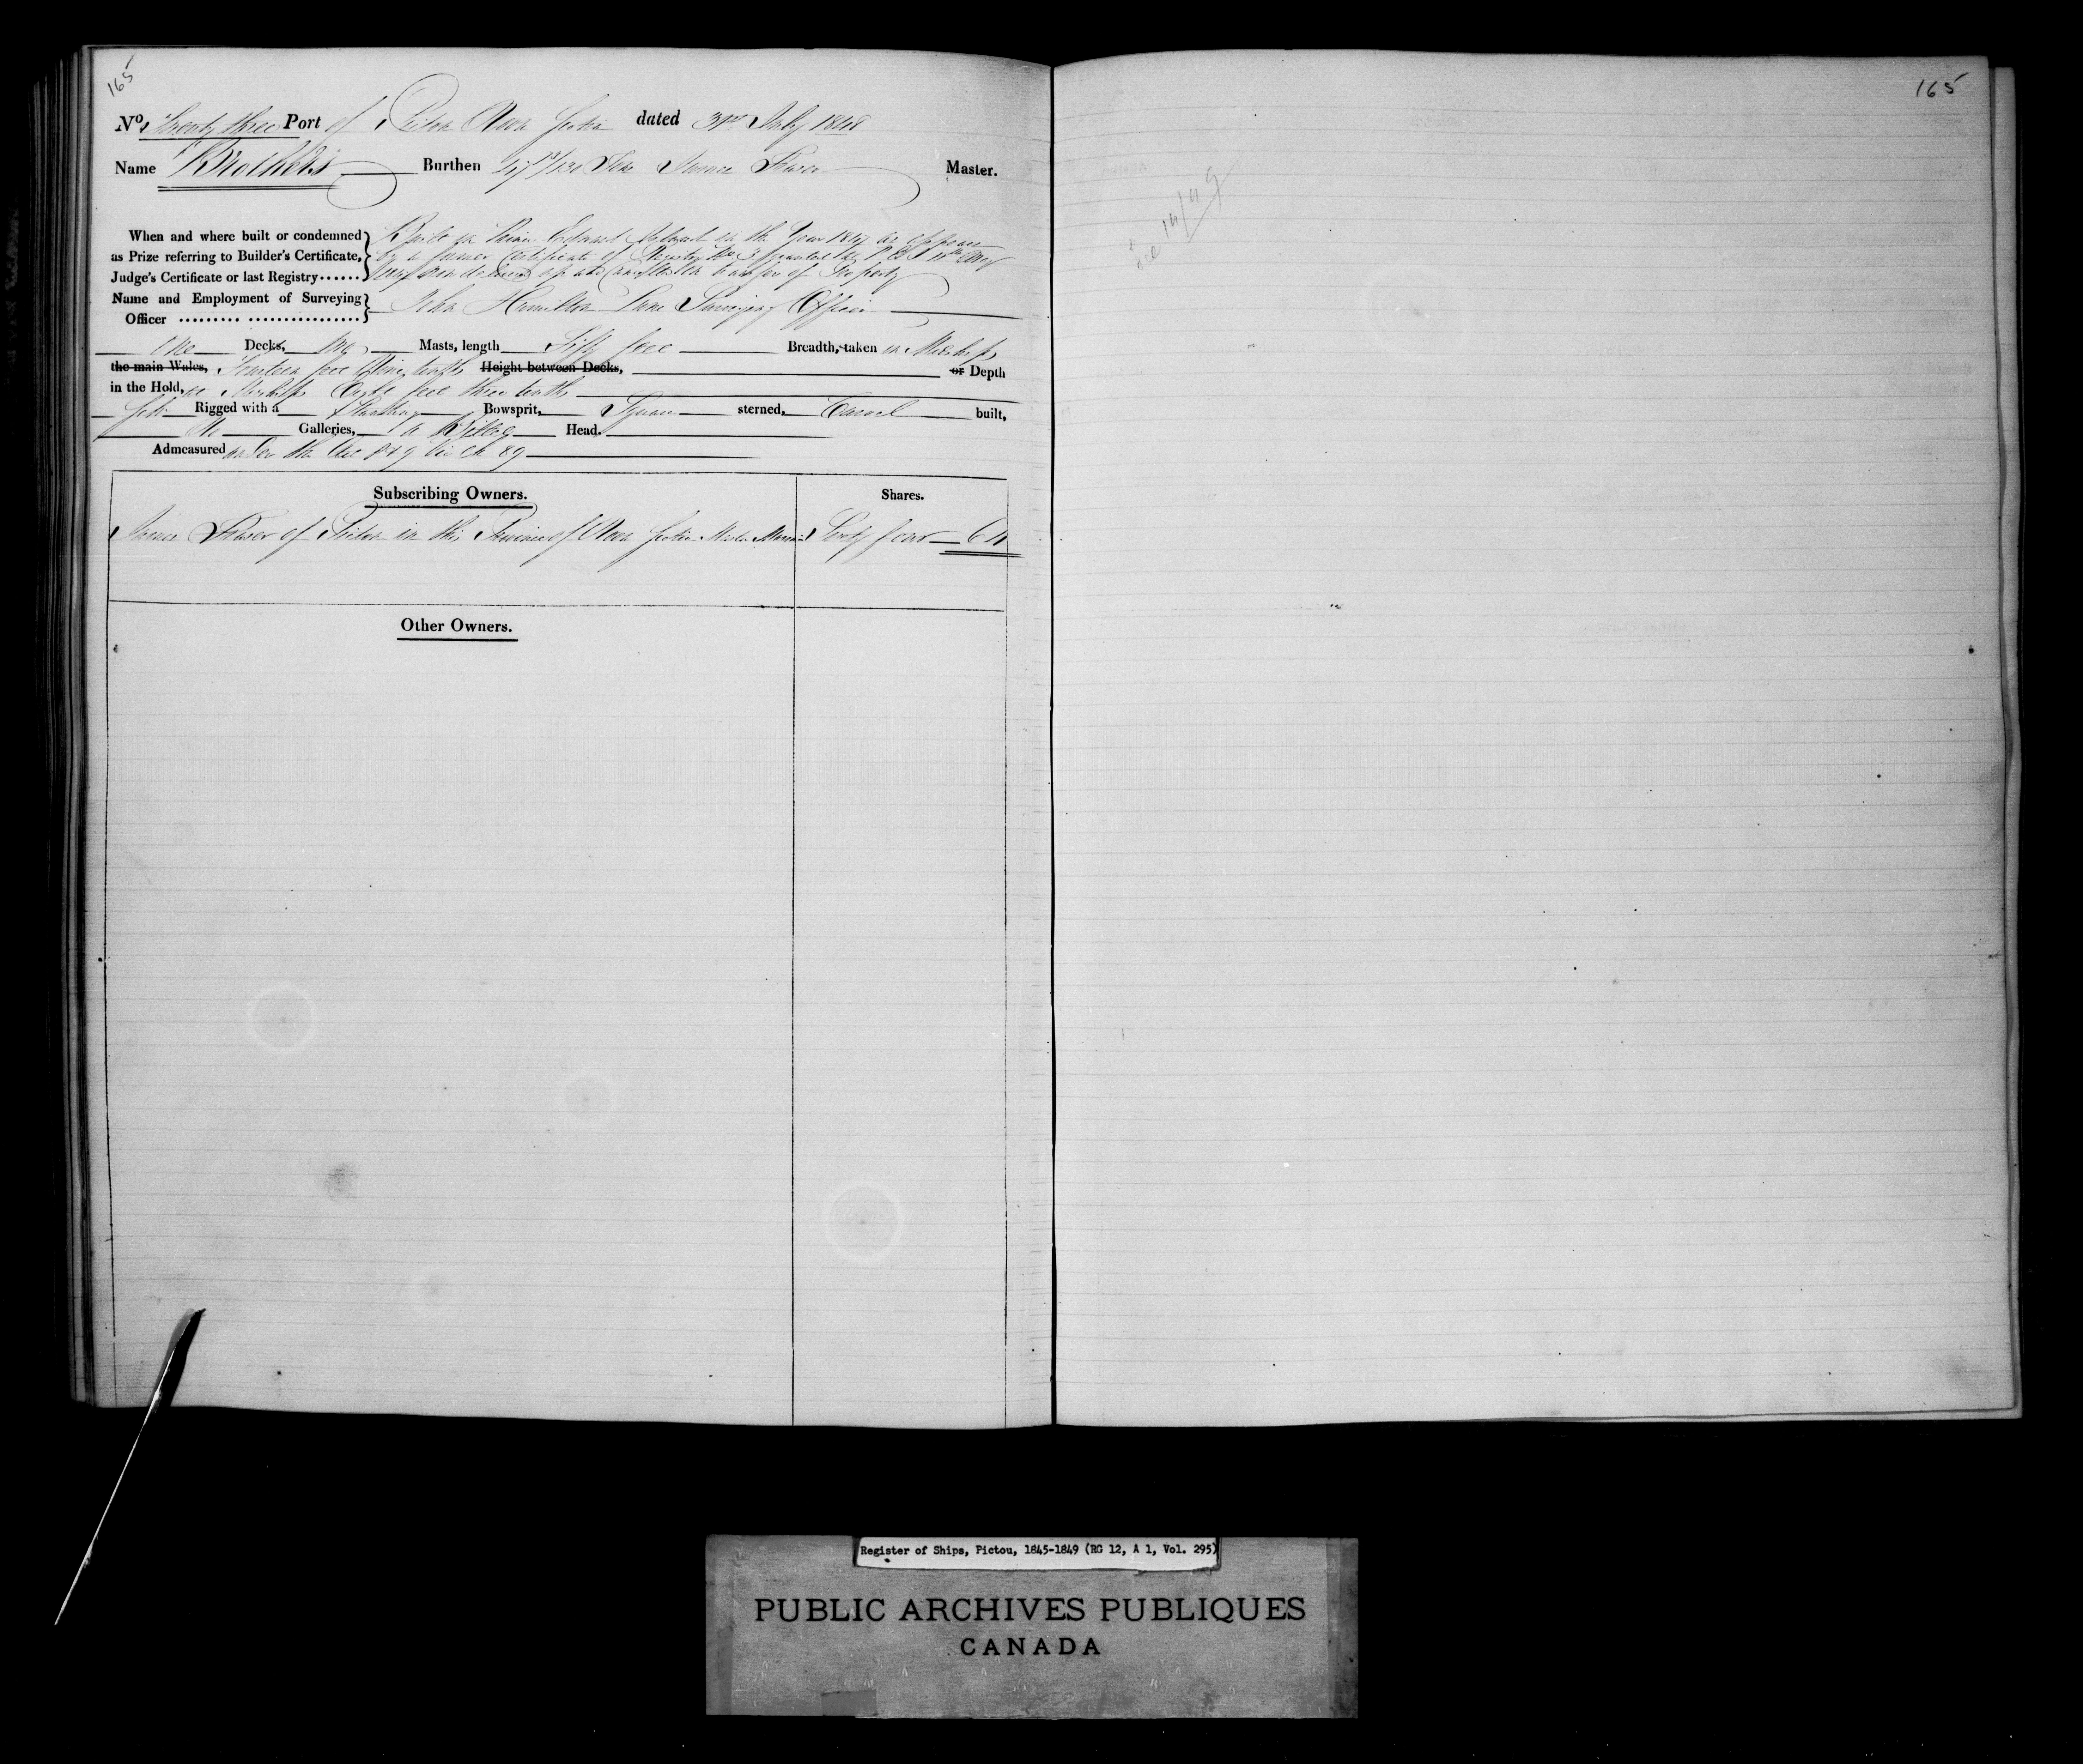 165
165
No. Twenty three Port of Pictou Nova Scotia dated 31st July 1848
Name "Brothers" Burthen 47 /130 Tons James Fraser Master.
When and where built or condemned as Prize referring to Builder's Certificate, Judge's Certificate or last Registry...... } Built in Prince Edward Island in the Year 1847 as appears
by a former Certificate of Registry No granted at P E I
now delivered up and cancelled on transfer of Property
Name and Employment of Surveying Officer ......... ................ } John Hamilton Lane Surveying Officer
One Decks, Two Masts, length Fifty feet Breadth, taken in Midships
the main Wales, Fourteen feet Nine tenths Height between Decks, or Depth
in the Hold, at Midships Eight feet three tenths
Rigged with a Standing Bowsprit, Square sterned, Carvel built,
No Galleries, a Billet Head.
Admeasured under the Act 8 & 9 Vic Ch 89
Subscribing Owners. Shares.
James Fraser of Pictou in the Province of Nova Scotia Master Mariner Sixty four 64
Other Owners.
Register of Ships, Pictou, 1845-1849 (RG 12, A 1, Vol. 295)
PUBLIC ARCHIVES PUBLIQUES
CANADA